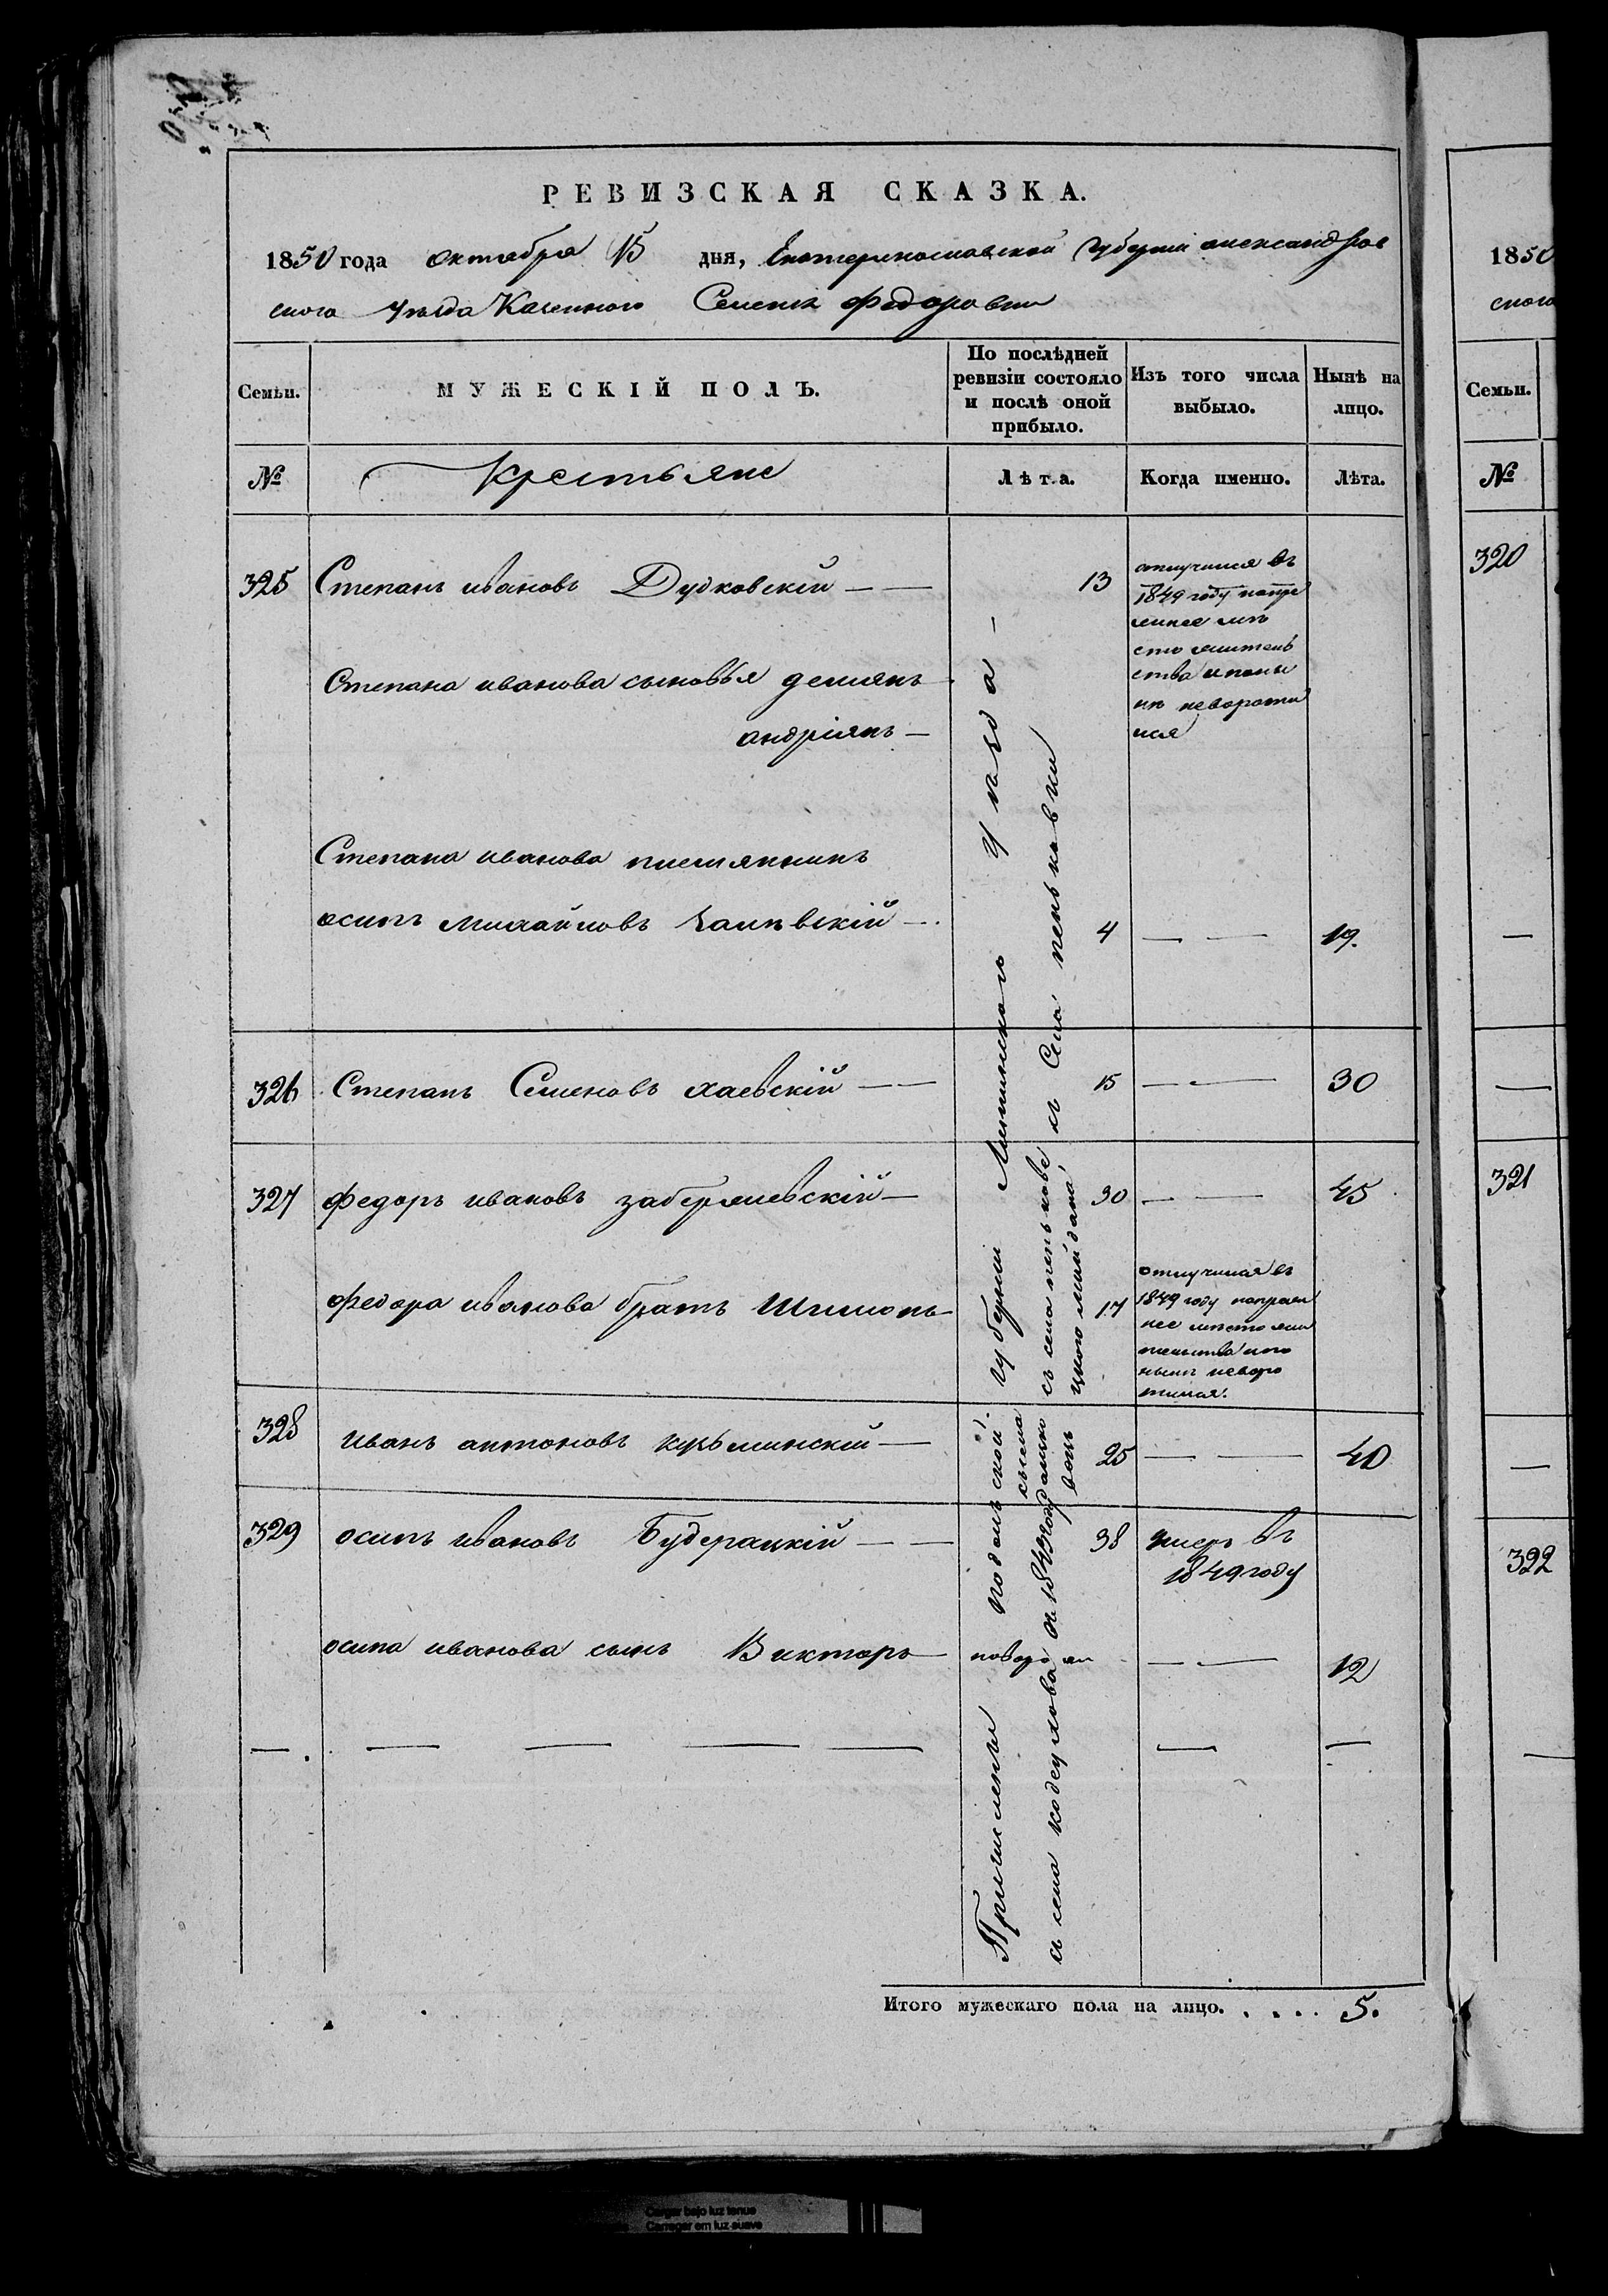 РЕВИЗСКАЯ СКАЗКА.
1850 года октября 15 дня, Екатеринославской Губерніи александров
ского уезда Казенного Селенія Федоровки
Семьи.
МУЖЕСКІЙ ПОЛЪ.
По послѣдней
ревизіи состояло
и послѣ оной
прибыло.
Изъ того числа
выбыло.
Нынѣ на
лицо.
№
Крестьяне
Лѣта.
Когда именно.
Лѣта.
325 Степанъ ивановъ Дудковскій 13
отлучился въ
1849 году
мѣ
сто житель
ства и поны
нѣ неворотил
ися
Степана иванова сыновья демянъ
андріянъ
Степана иванова племянникъ
осипъ михайловъ 4 19.
326 Степанъ Семеновъ хаевскій 15 30
327 федоръ ивановъ 30 45
федора иванова братъ Шимонъ 17
отлучился въ
1849 году
нее мѣсто жи
тельства и по
нынѣ неворо
тился.
328 иванъ антоновъ 25 40
329 осипъ ивановъ Будерацкій 38 умеръ въ
1849 году
осипа иванова сынъ Викторъ новорож 12
Причислены подольской губерніи Литинскаго уезда
съ села в 1843 году
съ Села пеньковки
Итого мужескаго пола на лицо. . . . . 5.
1850
ского
Семьи.
№
320
321
322